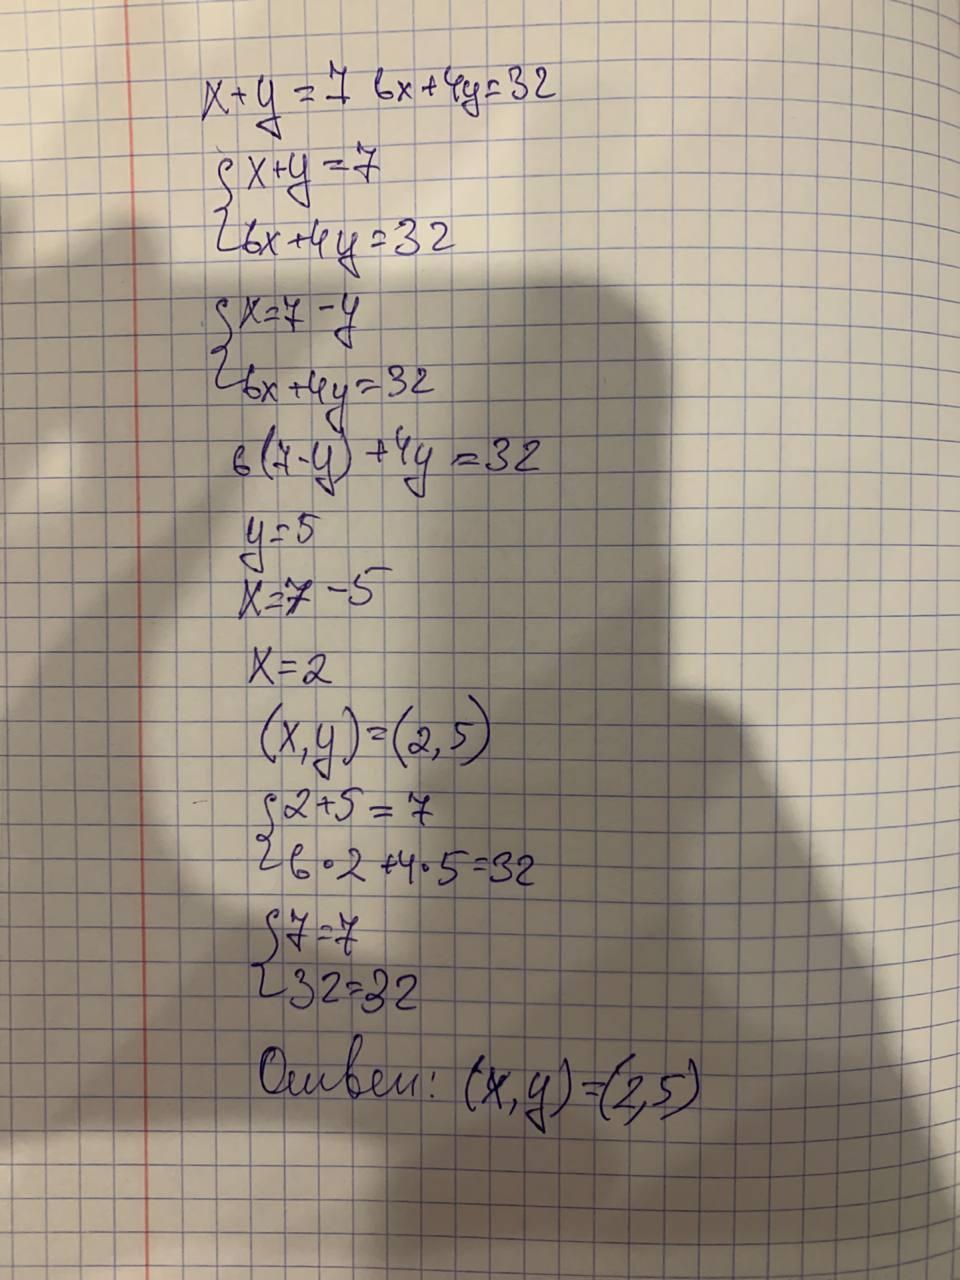 x+y=7 6x+4y=32
{x+y=7
{6x+4y=32
{x=7-y
{6x+4y=32
6(7-y)+4y=32
y=5
x=7-5
x=2
(x,y)=(2,5)
{2+5=7
{6·2+4·5=32
{7=7
{32=32
Ответ: (x,y)=(2,5)